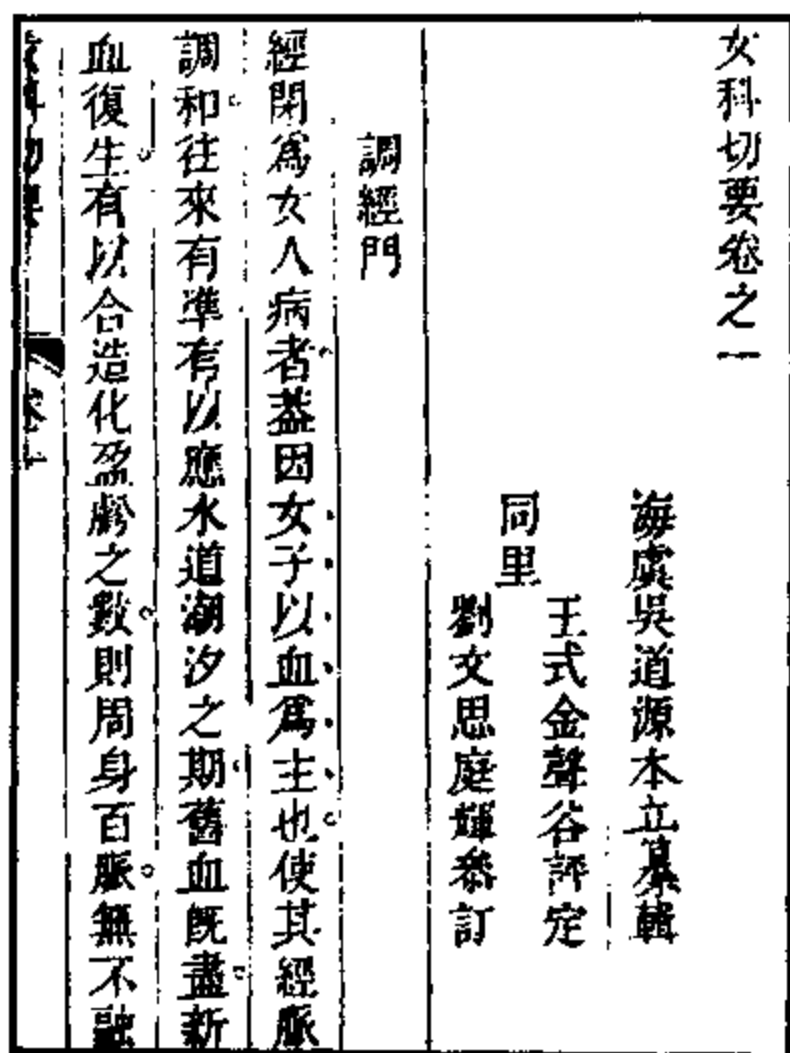 女科切要卷之一
海虞吳道源本立纂輯
同里
王式金聲谷評定
劉文思庭輝參訂
調經門
經閉爲女人病者葢因女子以血爲主也使其經脈
調和往來有準有以應水道潮汐之期舊血旣盡新
血復生有以合造化盈虧之數則周身百脈無不融